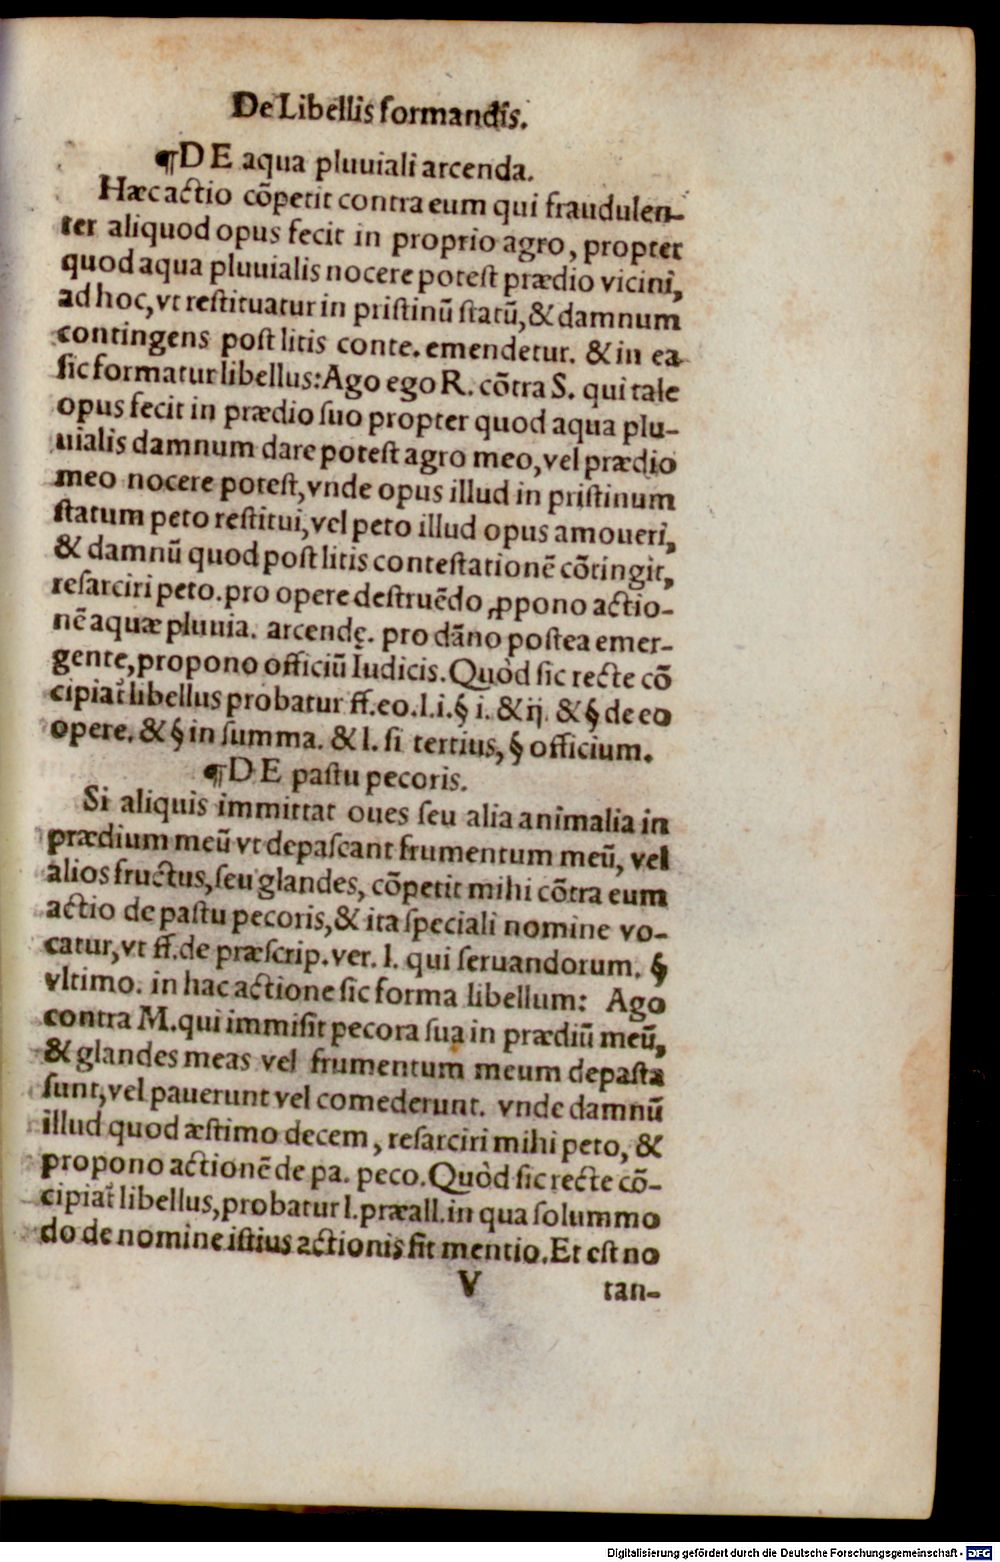 De Libellis formandis.
¶DE aqua pluuiali arcenda.
Hæc actio cõpetit contra eum qui fraudulen-
ter aliquod opus fecit in proprio agro, propter
quod aqua pluuialis nocere potest prædio vicini,
ad hoc, vt restituatur in pristinũ statũ, & damnum
contingens post litis conte. emendetur. & in ea
sic formatur libellus: Ago ego R. cõtra S. qui tale
opus fecit in prædio suo propter quod aqua plu-
uialis damnum dare potest agro meo, vel prædio
meo nocere potest, vnde opus illud in pristinum
statum peto restitui, vel peto illud opus amoueri,
& damnũ quod post litis contestationẽ cõtingit,
resarciri peto. pro opere destruẽdo ꝓpono actio-
nẽ aquæ pluuia. arcendę. pro dãno postea emer-
gente, propono officiũ Iudicis. Quòd sic recte cõ
cipiat̃ libellus probatur ff. eo. l. i. § i. & ij. & § de eo
opere. & § in summa. & l. si tertius, § officium.
¶DE pastu pecoris.
Si aliquis immittat oues seu alia animalia in
prædium meũ vt depascant frumentum meũ, vel
alios fructus, seu glandes, cõpetit mihi cõtra eum
actio de pastu pecoris, & ita speciali nomine vo-
catur, vt ff. de præscrip. ver. l. qui seruandorum. §
vltimo. in hac actione sic forma libellum: Ago
contra M. qui immisit pecora sua in prædiũ meũ,
& glandes meas vel frumentum meum depasta
sunt, vel pauerunt vel comederunt. vnde damnũ
illud quod æstimo decem, resarciri mihi peto, &
propono actionẽ de pa. peco. Quòd sic recte cõ-
cipiat̃ libellus, probatur l. præall. in qua solummo
do de nomine istius actionis fit mentio. Et est no
V tan-
Digitalisierung gefördert durch die Deutsche Forschungsgemeinschaft - DFG